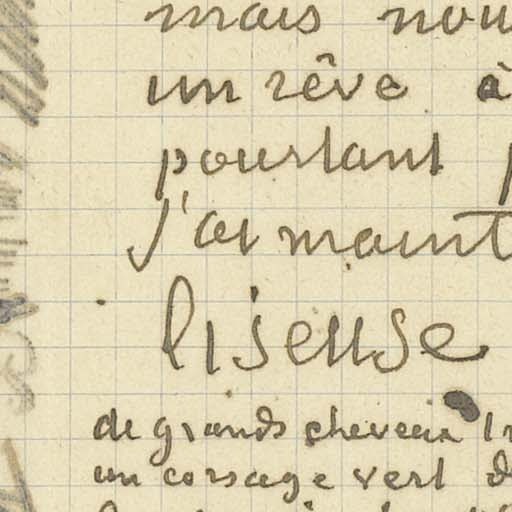 mais nou
un rêve à
pourtant p
j'ai maint
liseuse
de grands cheveux
un corsage vert d